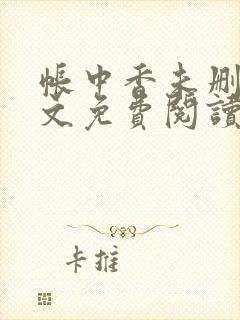 帳中香未删
文免費閱讀
卡推